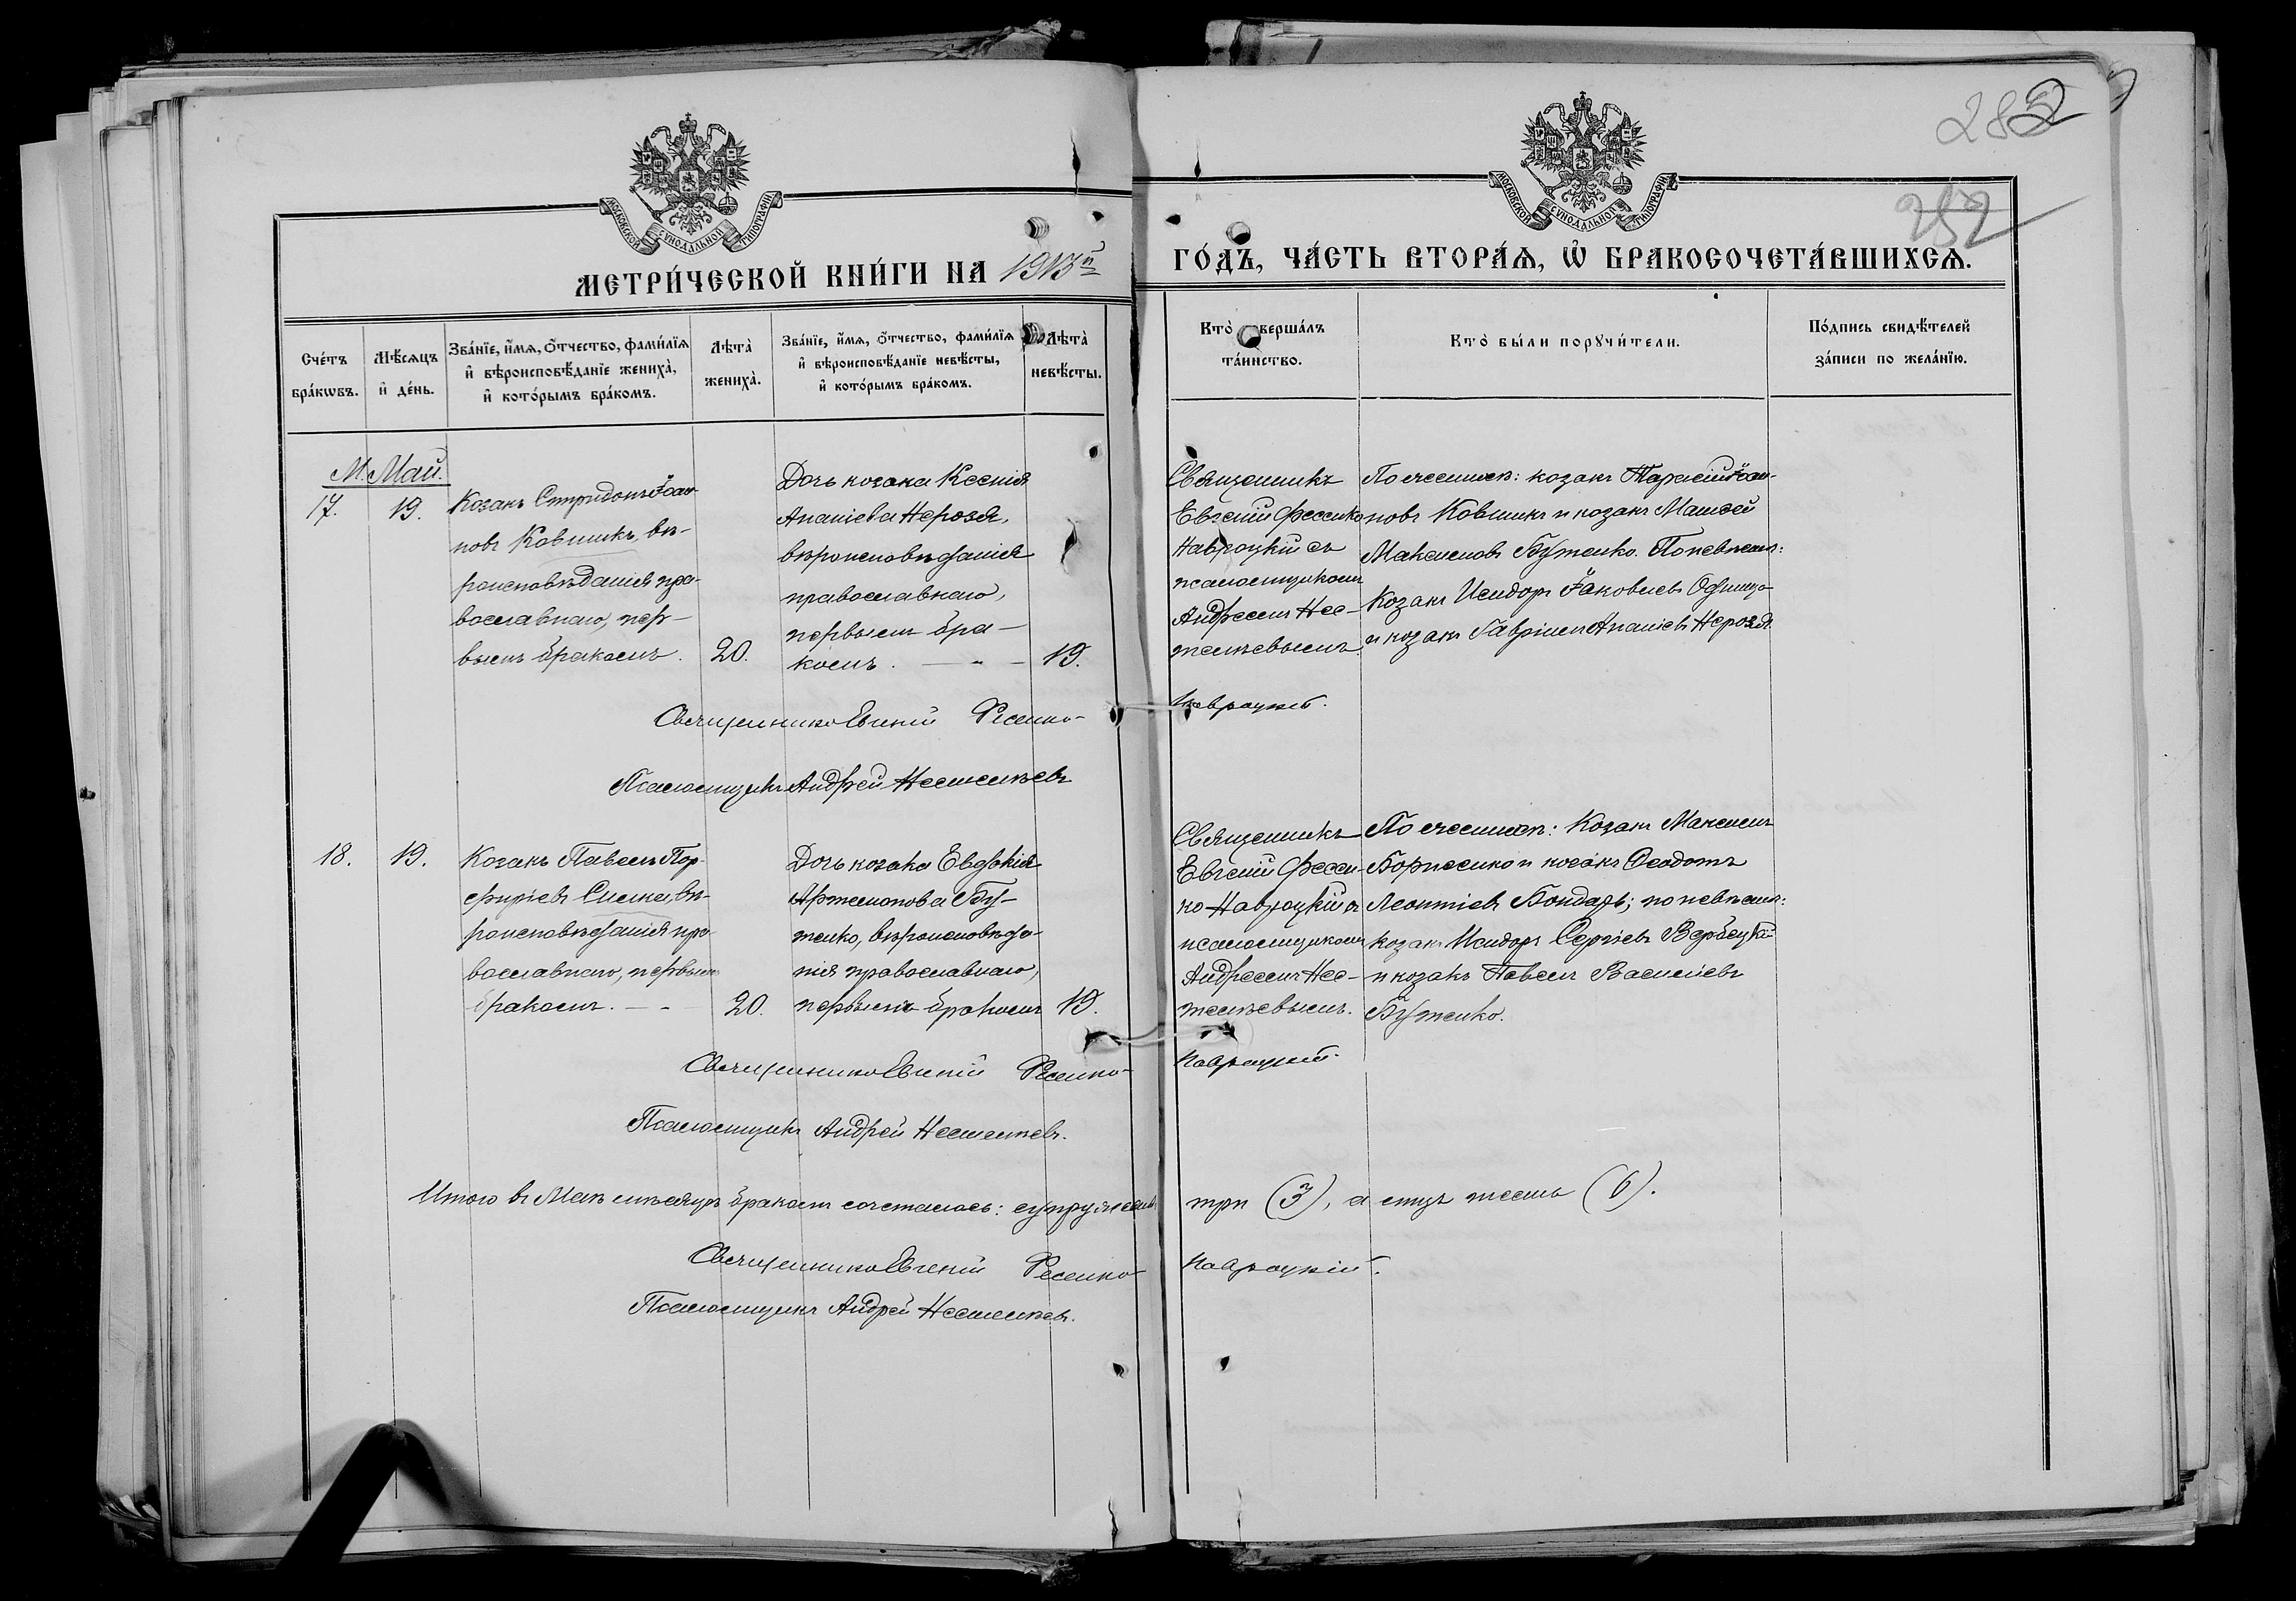 282
282
МОСКОВСКОЙ СѴНОДАЛЬНОЙ ТИПОГРАФІИ
МОСКОВСКОЙ СѴНОДАЛЬНОЙ ТИПОГРАФІИ
МЕТРИ́ЧЕСКОЙ КНИ́ГИ НА 1913й
ГО́ДЪ, ЧА́СТЬ ВТОРА́Ѧ, Ѡ҆ БРАКОСОЧЕТА́ВШИХСѦ.
Сче́тъ бра́кѡвъ.
Мѣ́сѧцъ и҆ де́нь.
Зва́нїе, и҆́мѧ, ѻ҆́тчество, фами́лїѧ и҆ вѣроисповѣ́данїе жениха̀, и҆ кото́рымъ бра́комъ.
Лѣта̀ жениха̀.
Зва́нїе, и҆́мѧ, ѻ҆́тчество, фами́лїѧ и҆ вѣроисповѣ́данїе невѣ́сты, и҆ кото́рымъ бра́комъ.
Лѣта̀ невѣ́сты.
Кто̀ совершáлъ та́инство.
Кто̀ бы́ли порꙋчи́тели.
По́дпись свидѣ́телей за́писи по жела́нїю.
М. Май.
17.
19.
Козакъ Спиридонъ Іоан-
новъ Ковшикъ, вѣ-
роисповѣданія пра-
вославнаго, пер-
вымъ бракомъ.
20.
Дочь козака Ксенія
Ананіева Нерозя,
вѣроисповѣданія
православнаго,
первымъ бра-
комъ.
19.
Священникъ
Евгеній Фесенко
Навроцкій съ
псаломщикомъ
Андреемъ Нес-
тенкевымъ.
По женихѣ: козакъ Тарасій Іоан-
новъ Ковшикъ и козакъ Мамѳей
Максимовъ Бутенко. По невѣстѣ:
Козакъ Исидоръ Іаковлевъ
и козакъ Гавріилъ Ананіевъ Нерозя.
Священникъ Евгеній Фесенко-
Навроцкій.
Псаломщикъ Андрей
18.
19.
Козакъ Павелъ Пор-
фиріевъ вѣ-
роисповѣданія пра-
вославнаго, первымъ
бракомъ.
20.
Дочь козака Евдокія
Артемонова Бу-
тенко, вѣроисповѣда-
нія православнаго,
первымъ бракомъ
19.
Священникъ
Евгеній Фесен-
ко-Навроцкій съ
псаломщикомъ
Андреемъ Нес-
тенкевымъ.
По женихѣ: Козакъ Максимъ
Борисенко и козакъ Ѳеодотъ
Леонтіевъ Бондарь; по невѣстѣ:
козакъ Исидоръ Сергіевъ
и козакъ Павелъ Василіевъ
Бутенко.
Священникъ Евгеній Фесенко-
Навроцкій.
Псаломщикъ Андрей
Итого въ Маѣ мѣсяцѣ бракомъ сочеталось: супружествъ
три (3), а лицъ шесть (6).
Священникъ Евгеній Фесенко
Навроцкій.
Псаломщикъ Андрей